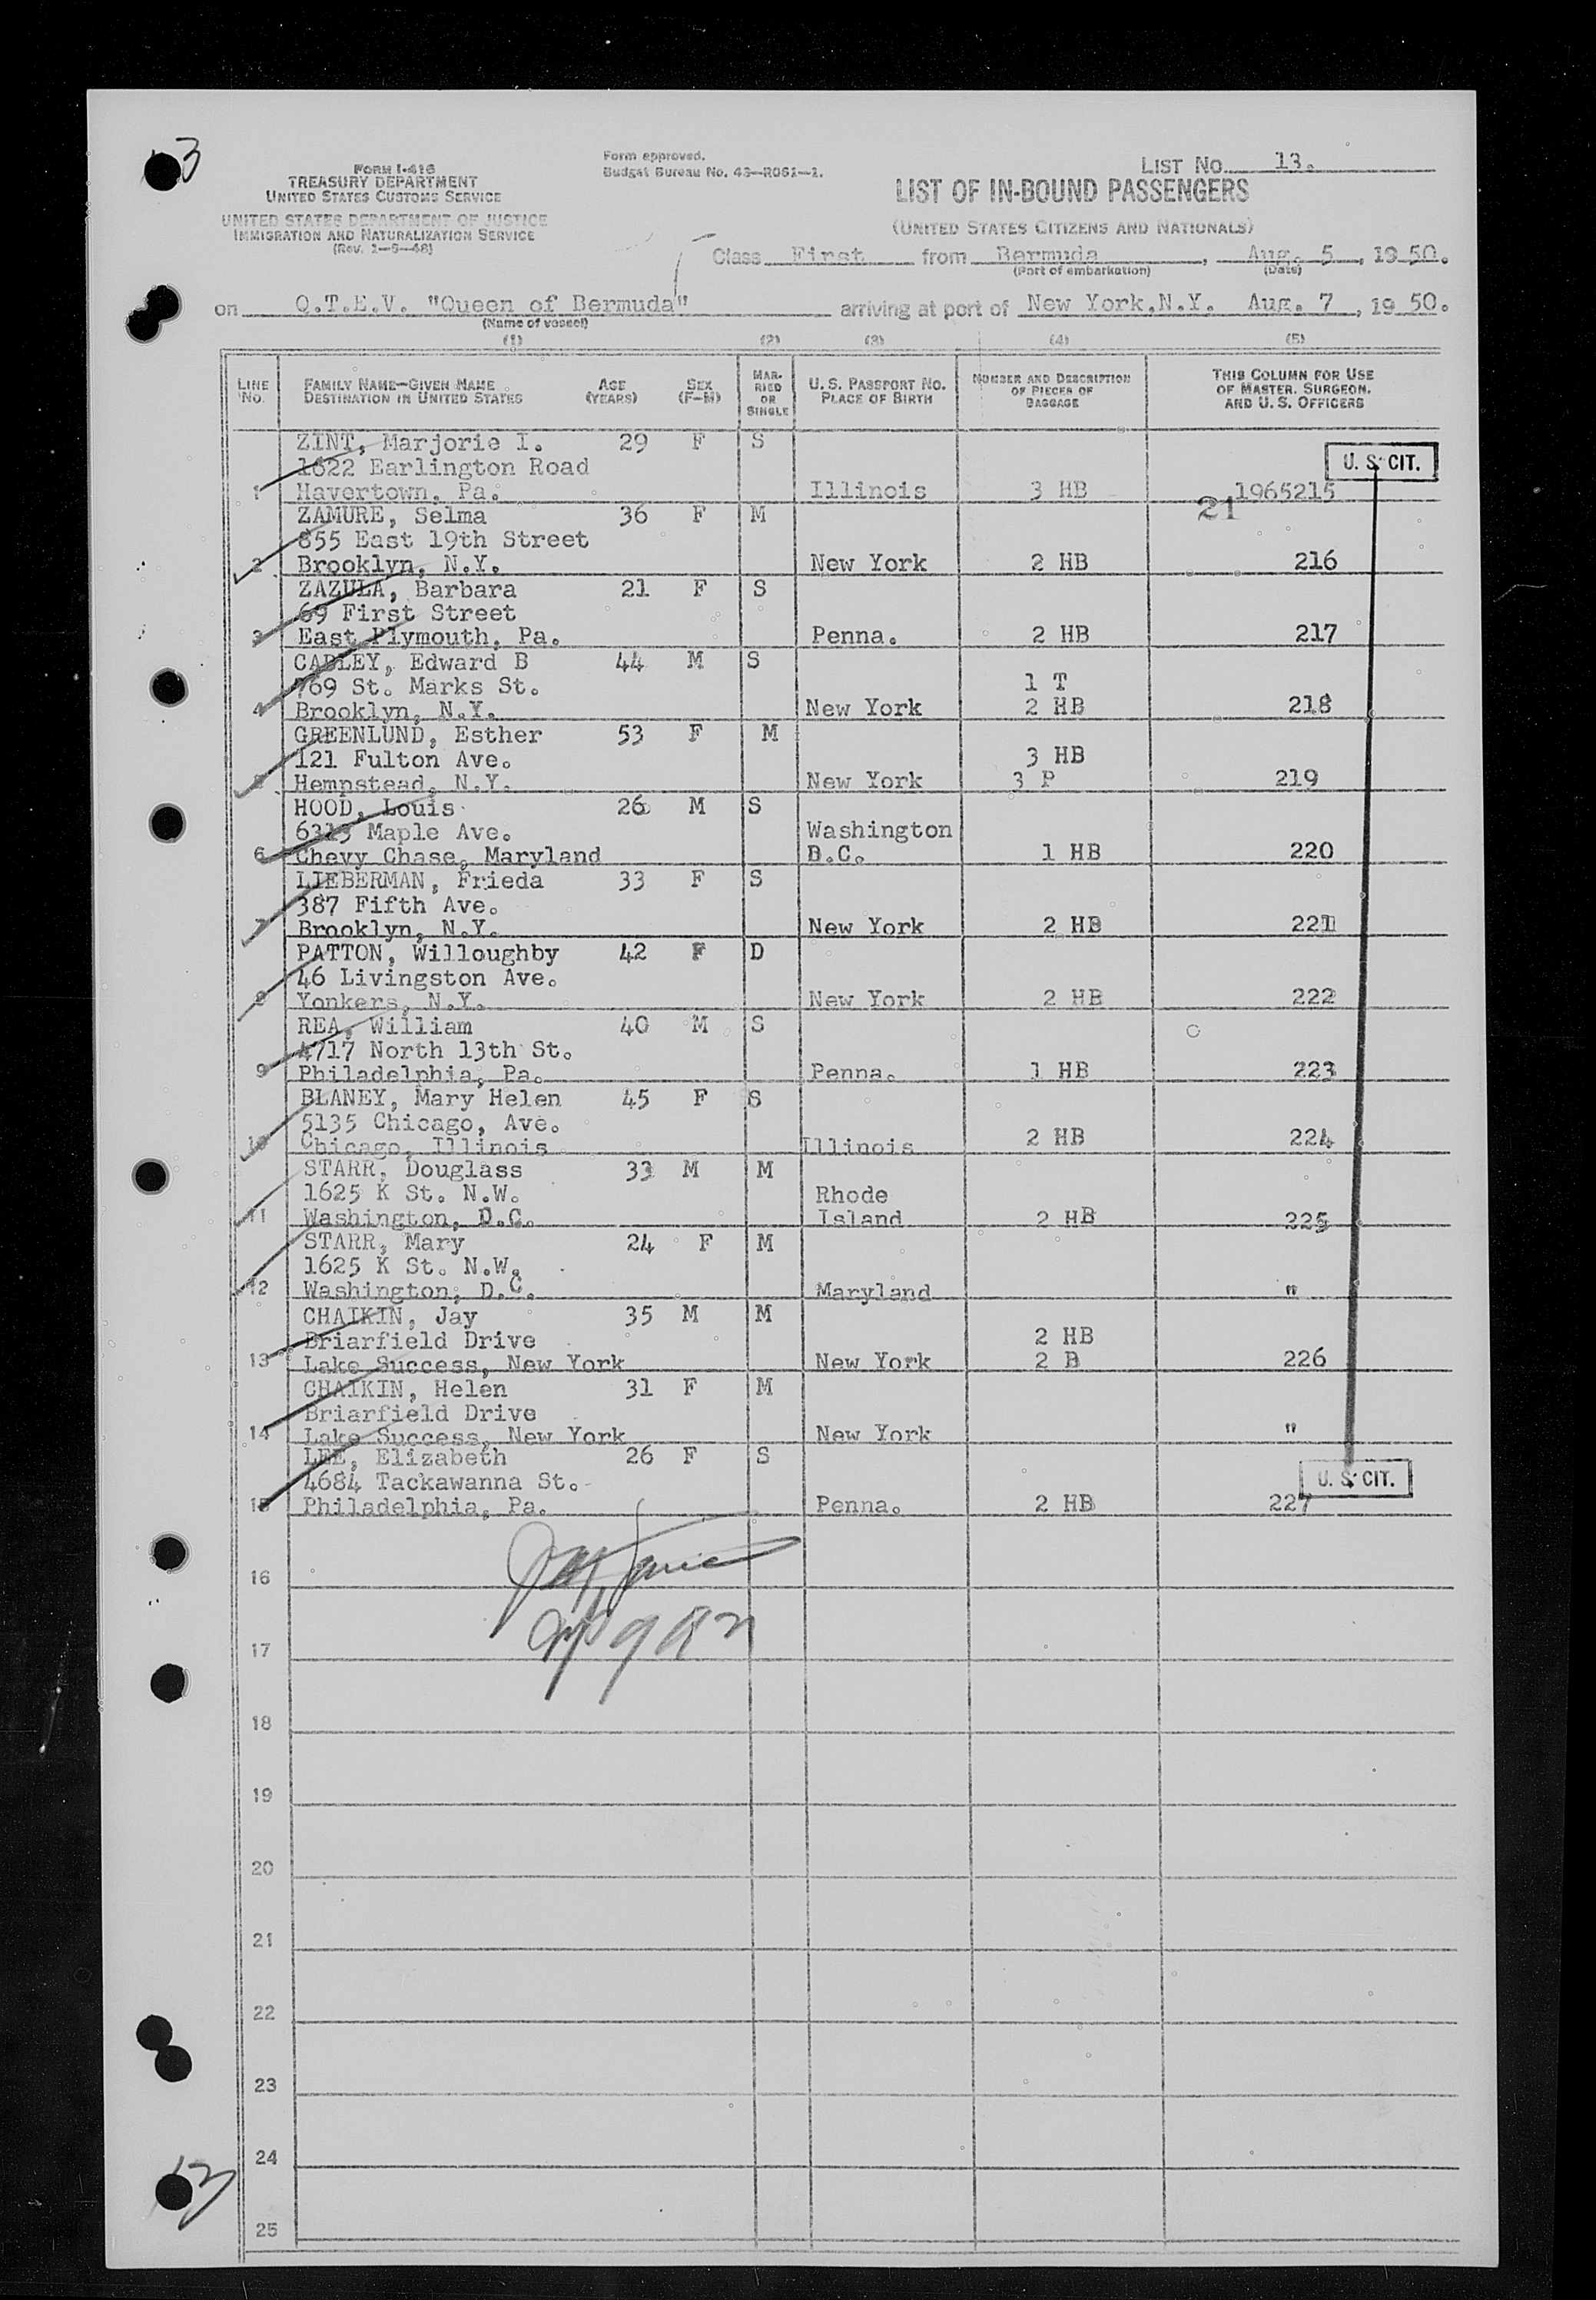 13
FORM I-416
TREASURY DEPARTMENT
UNITED STATES CUSTOMS SERVICE
UNITED STATES DEPARTMENT OF JUSTICE
IMMIGRATION AND NATURALIZATION SERVICE
(Rev. 1-5-48)
Form approved.
Budget Bureau No. 43-R061-1.
LIST No. 13.
LIST OF IN-BOUND PASSENGERS
(UNITED STATES CITIZENS AND NATIONALS)
Class First from Bermuda, Aug. 5, 1950.
(Port of embarkation) (Date)
on Q.T.E.V. "Queen of Bermuda" arriving at port of New York,N.Y. Aug. 7, 1950.
(Name of vessel)
(1) (2) (3) (4) (5)
LINE No. FAMILY NAME—GIVEN NAME DESTINATION IN UNITED STATES AGE (YEARS) SEX (F-M) MARRIED OR SINGLE U. S. PASSPORT NO. PLACE OF BIRTH NUMBER AND DESCRIPTION OF PIECES OF BAGGAGE THIS COLUMN FOR USE OF MASTER, SURGEON, AND U. S. OFFICERS
ZINT, Marjorie I. 29 F S
1622 Earlington Road U. S. CIT.
1 Havertown, Pa. Illinois 3 HB 1965215
21
ZAMURE, Selma 36 F M
855 East 19th Street
2 Brooklyn, N.Y. New York 2 HB 216
ZAZULA, Barbara 21 F S
69 First Street
3 East Plymouth, Pa. Penna. 2 HB 217
CABLEY, Edward B 44 M S
769 St. Marks St. 1 T
4 Brooklyn, N.Y. New York 2 HB 218
GREENLUND, Esther 53 F M
121 Fulton Ave. 3 HB
5 Hempstead, N.Y. New York 3 P 219
HOOD, Louis 26 M S
6313 Maple Ave. Washington
6 Chevy Chase, Maryland D.C. 1 HB 220
LIEBERMAN, Frieda 33 F S
387 Fifth Ave.
7 Brooklyn, N.Y. New York 2 HB 221
PATTON, Willoughby 42 F D
46 Livingston Ave.
8 Yonkers, N.Y. New York 2 HB 222
REA, William 40 M S
4717 North 13th St.
9 Philadelphia, Pa. Penna. 1 HB 223
BLANEY, Mary Helen 45 F S
5135 Chicago, Ave.
10 Chicago, Illinois Illinois 2 HB 224
STARR, Douglass 33 M M
1625 K St. N.W. Rhode
11 Washington, D.C. Island 2 HB 225
STARR, Mary 24 F M
1625 K St. N.W.
12 Washington, D.C. Maryland "
CHAIKIN, Jay 35 M M
Briarfield Drive 2 HB
13 Lake Success, New York New York 2 B 226
CHAIKIN, Helen 31 F M
Briarfield Drive
14 Lake Success, New York New York "
LEE, Elizabeth 26 F S
4684 Tackawanna St. U. S. CIT.
15 Philadelphia, Pa. Penna. 2 HB 227
16
17
18
19
20
21
22
23
24
13
25